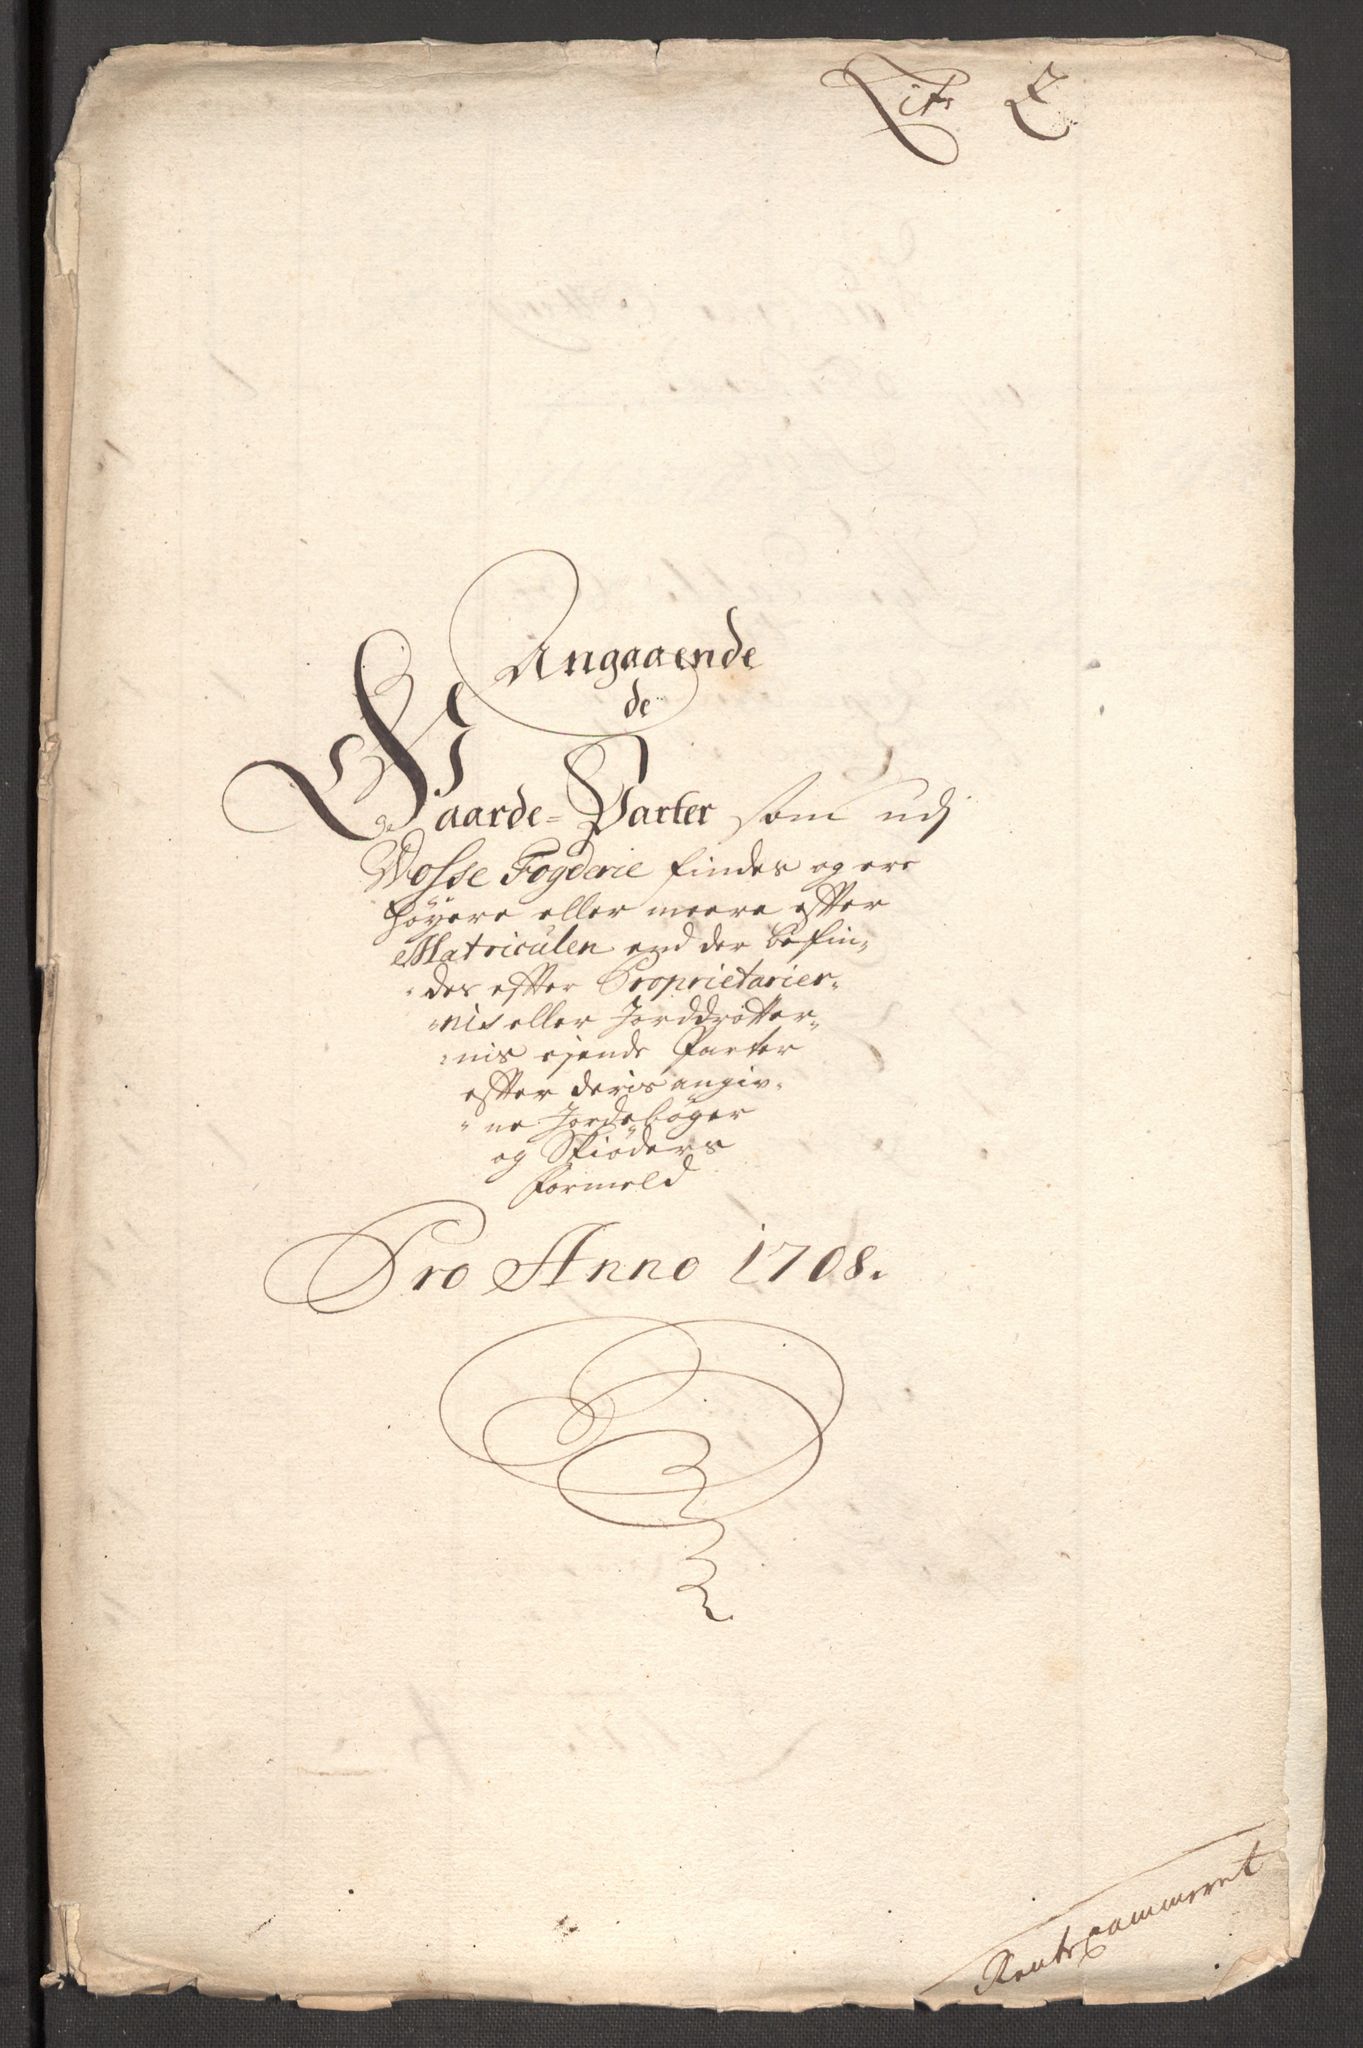 Litr
Angaaende
de
Gaarde-Parter som udj
Wosse Fogderie findes og ere
höyere eller meere efter
Matriculen end der befin-
des efter Proprietarier-
nis eller Jorddrotter-
nis ejende Parter
efter deris angiv-
ne Jordebøger
og Skiöders
formeld
Pro Anno 1708.
Rentecammeret